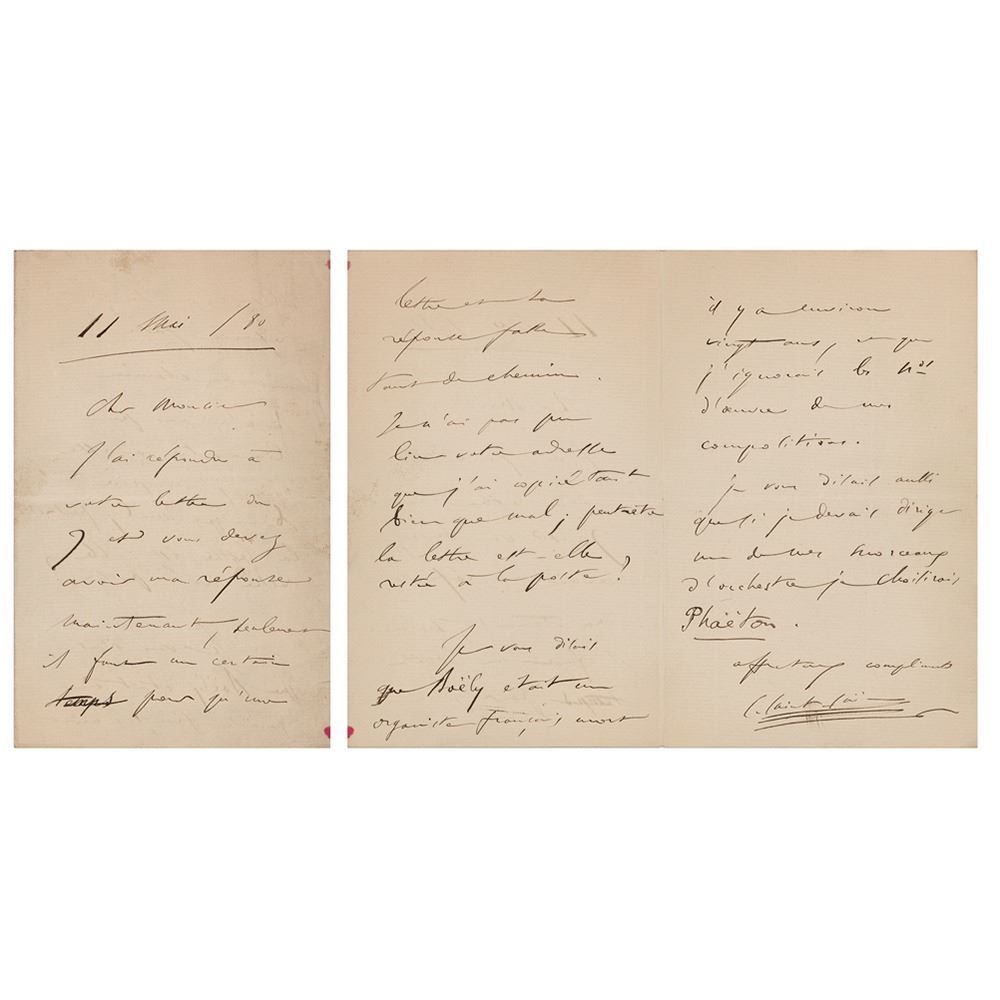 11 Mai / 80
Cher Monsieur
J'ai répondu à
votre lettre du
7 et vous devez
avoir ma réponse
maintenant, seulement
il faut un certain
temps pour qu'une
lettre et sa
réponse fasse
tant de chemin.
Je n'ai pas pu
lire votre adresse
que j'ai copiée tant
bien que mal; peut-être
la lettre est-elle
restée à la poste?
Je vous disais
que Boëly etait un
organiste français mort
il y a environ
vingt ans, et que
j'ignorais les nos
d'œuvre de mes
compositions.
Je vous disais aussi
que si je devais diriger
un de mes morceaux
d'orchestre je choisirais
Phaëton.
affectueux compliments
C. Saint-Saëns